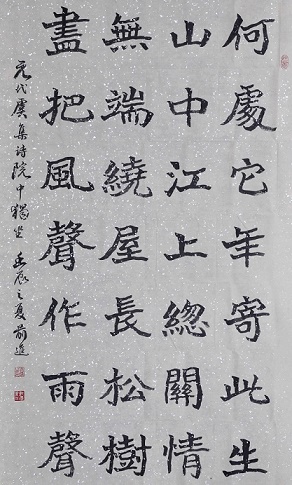 何處它年寄此生
山中江上總關情
無端繞屋長松樹
盡把風聲作雨聲
元代虞集诗院中獨坐 壬辰之夏前進